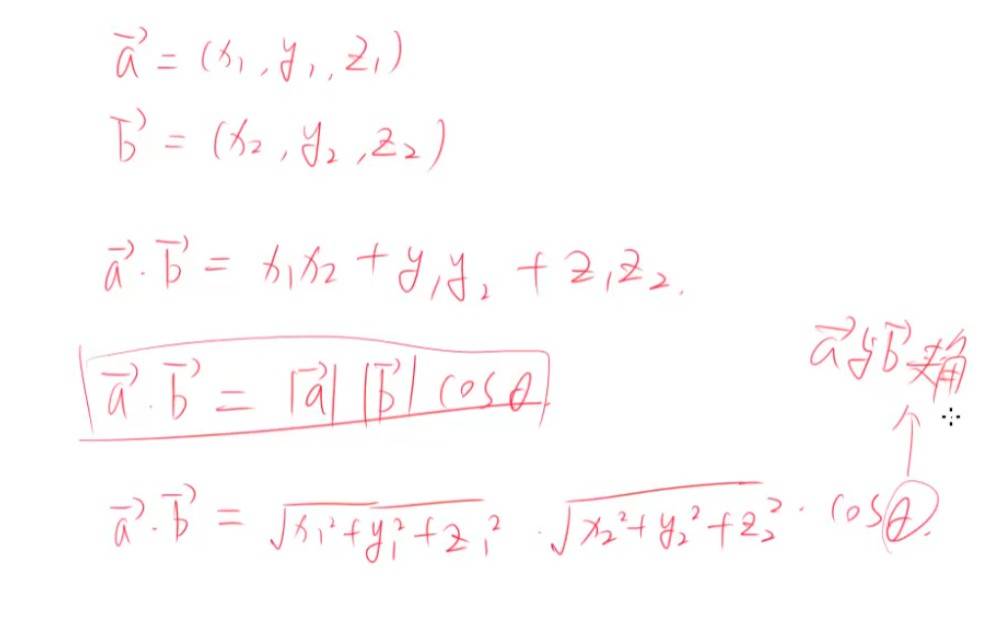 a⃗ = (x₁, y₁, z₁)
b⃗ = (x₂, y₂, z₂)
a⃗·b⃗ = x₁x₂ + y₁y₂ + z₁z₂.
a⃗与b⃗夹角
a⃗·b⃗ = |a⃗| |b⃗| cosθ
a⃗·b⃗ = √(x₁²+y₁²+z₁²) · √(x₂²+y₂²+z₂²) · cosθ.